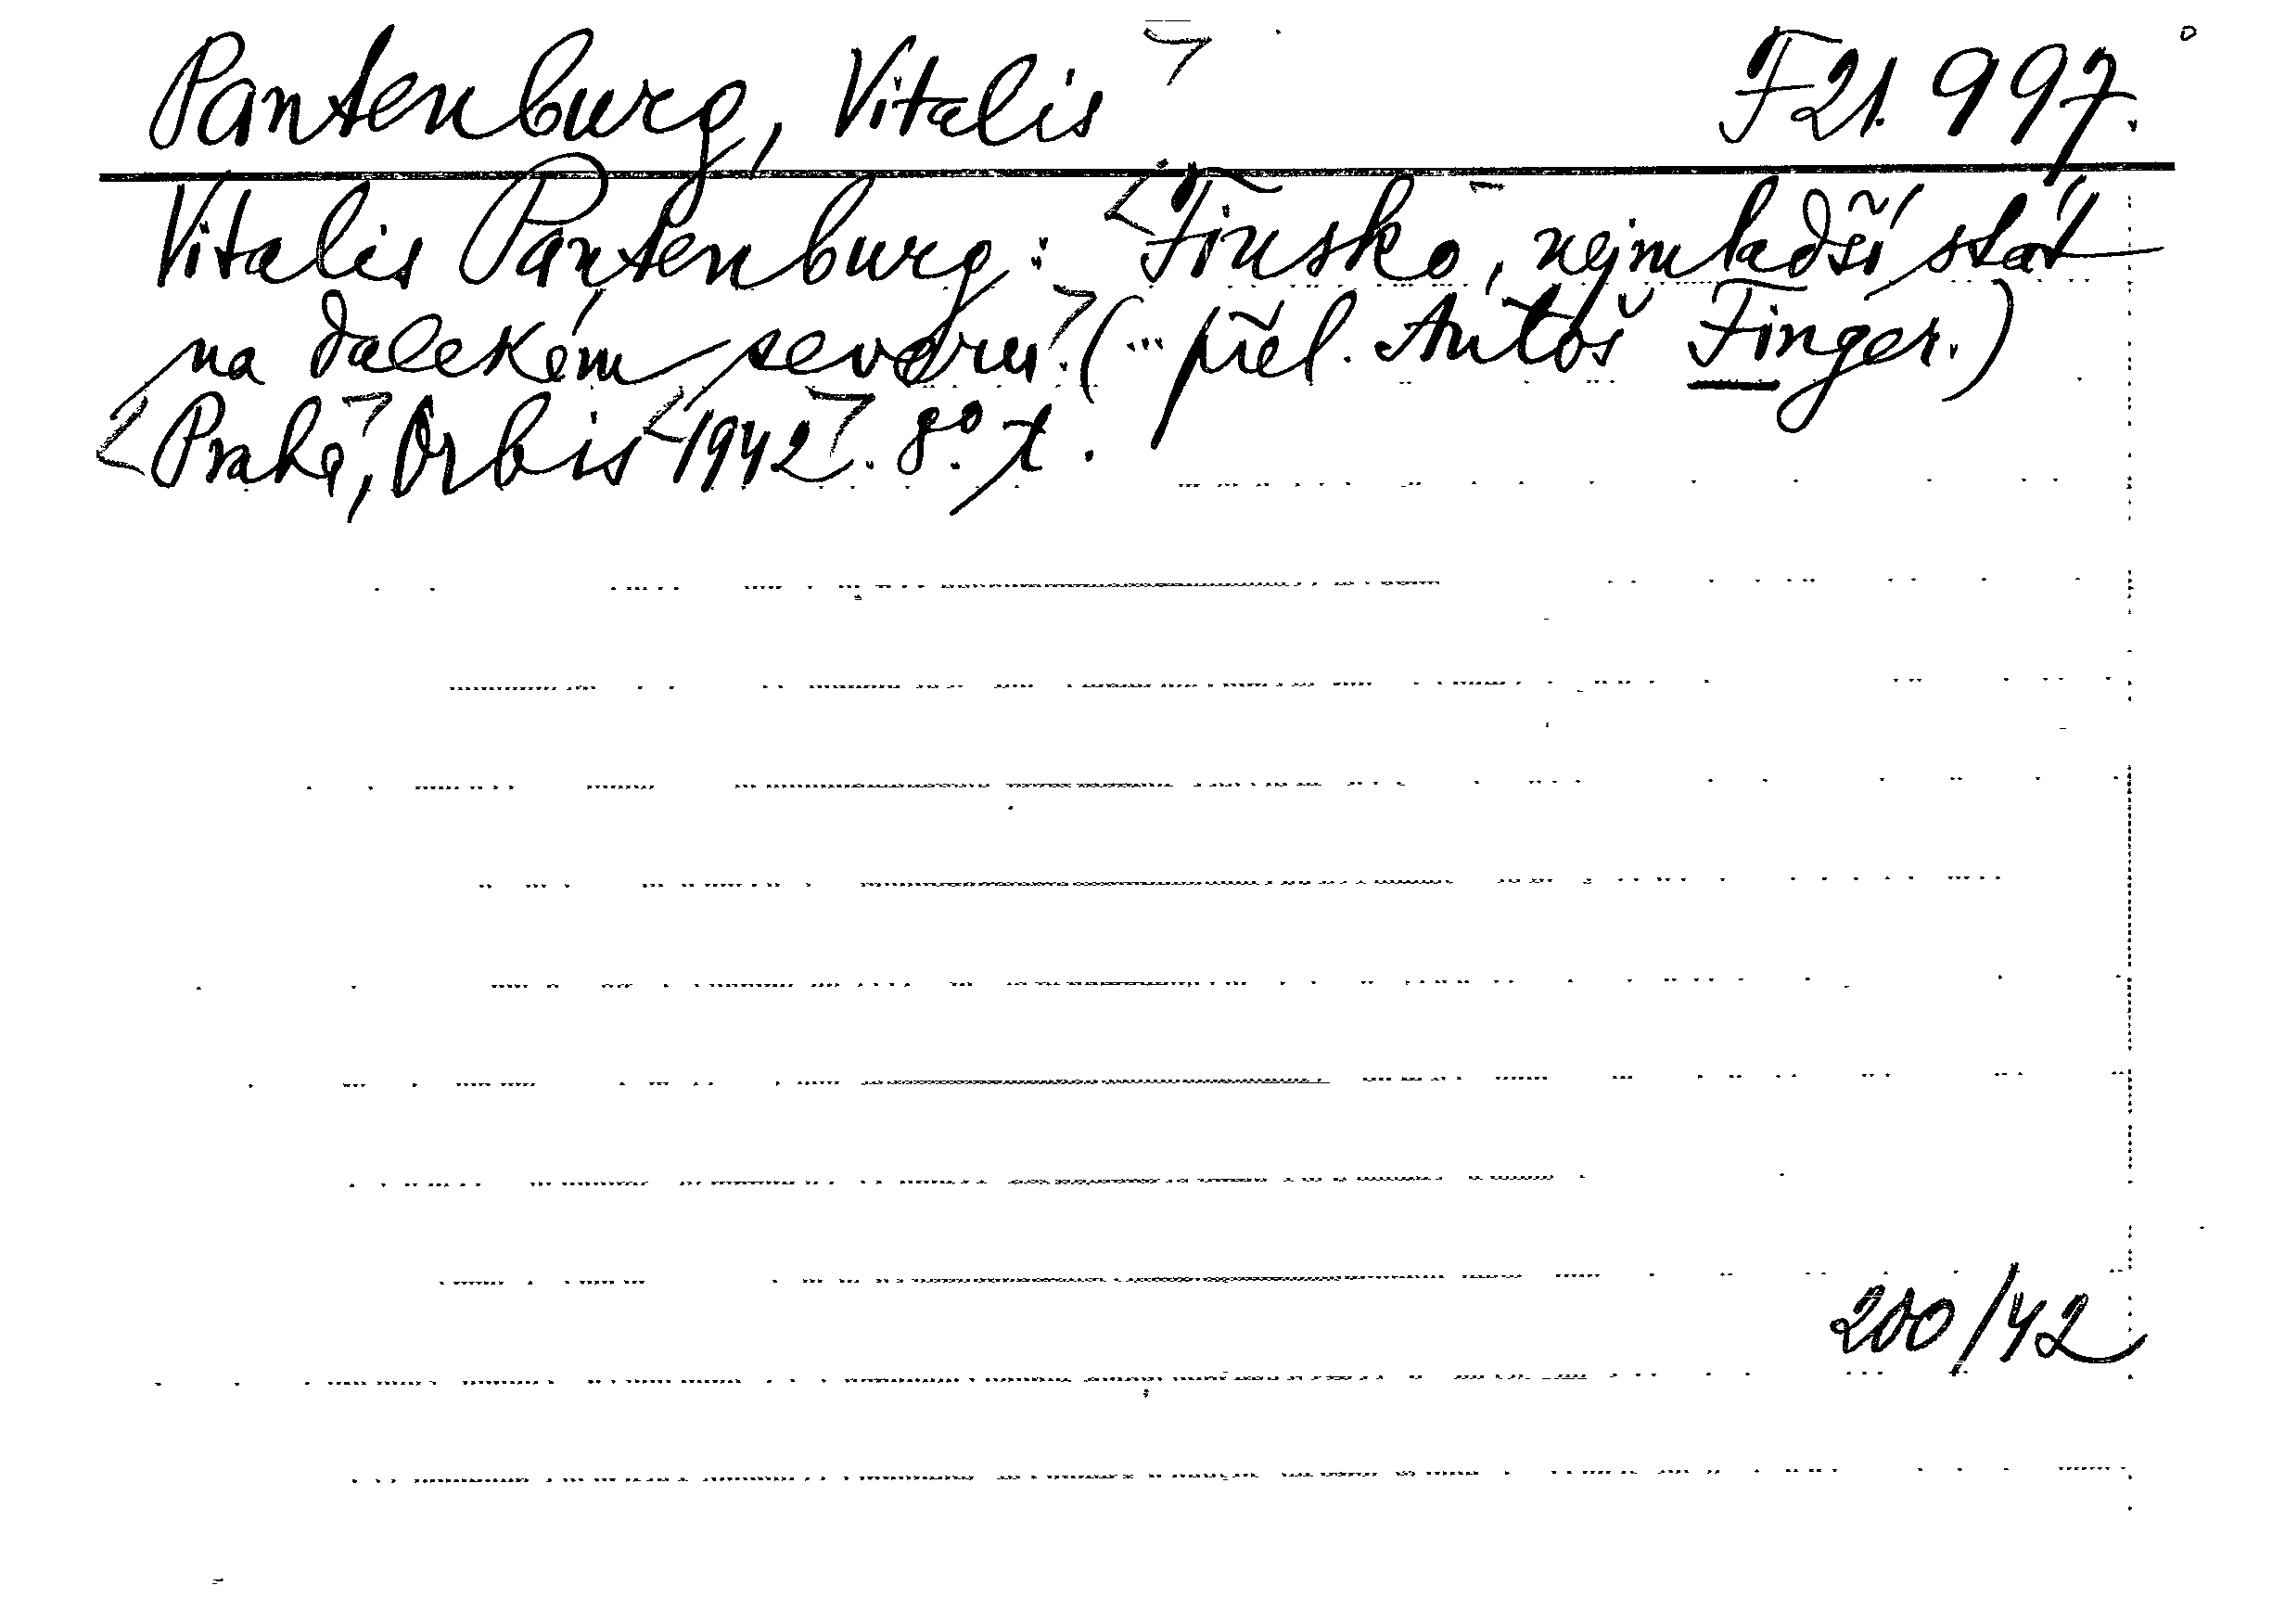 Pantenburg, Vitalis F 21.997.
Vitalis Pantenburg: Finsko, nejmladší stát
na dalekém severu. (... přel. Antoš Finger.)
Praha, Orbis 1942. 8°. t.
200/42